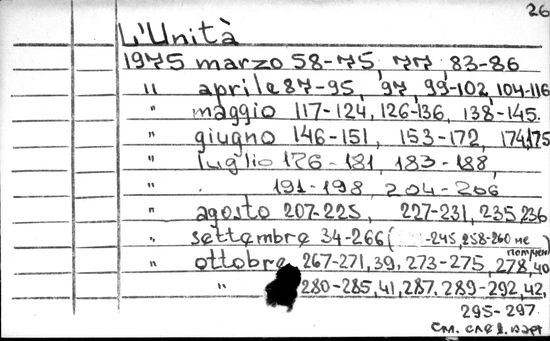 26
L'Unità
1975 marzo 58-75, 77, 83-86
" aprile 87-95, 97, 99-102, 104-116
" maggio 117-124, 126-136, 138-145.
" giugno 146-151, 153-172, 174,175
" luglio 176-181, 183-188,
" 191-198, 204-206
" agosto 207-225, 227-231, 235, 236
" settembre 34-266 ( -245, 258-260 не
получен
" ottobre 267-271, 39, 273-275, 278, 40
" 280-285, 41, 287, 289-292, 42,
295-297.
см. след. карт